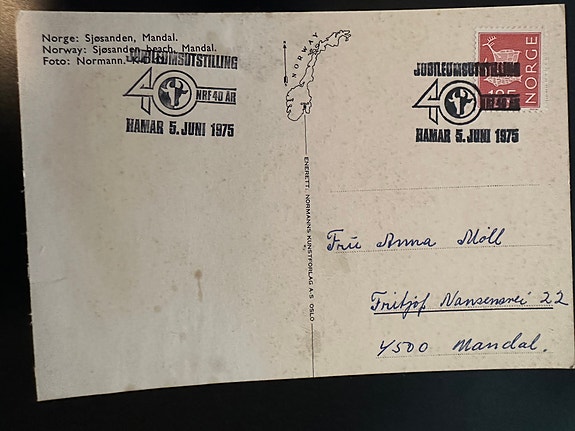 Norge: Sjøsanden, Mandal.
Norway: Sjøsanden beach, Mandal.
Foto: Normann.
JUBILEUMSUTSTILLING
40
NRF 40 ÅR
HAMAR 5. JUNI 1975
NORWAY
ENERETT: NORMANNS KUNSTFORLAG A.S. OSLO
JUBILEUMSUTSTILLING
40
HAMAR 5. JUNI 1975
NORGE
Fru Anna Moll
Fritjof Nansensvei 22
4500 Mandal.